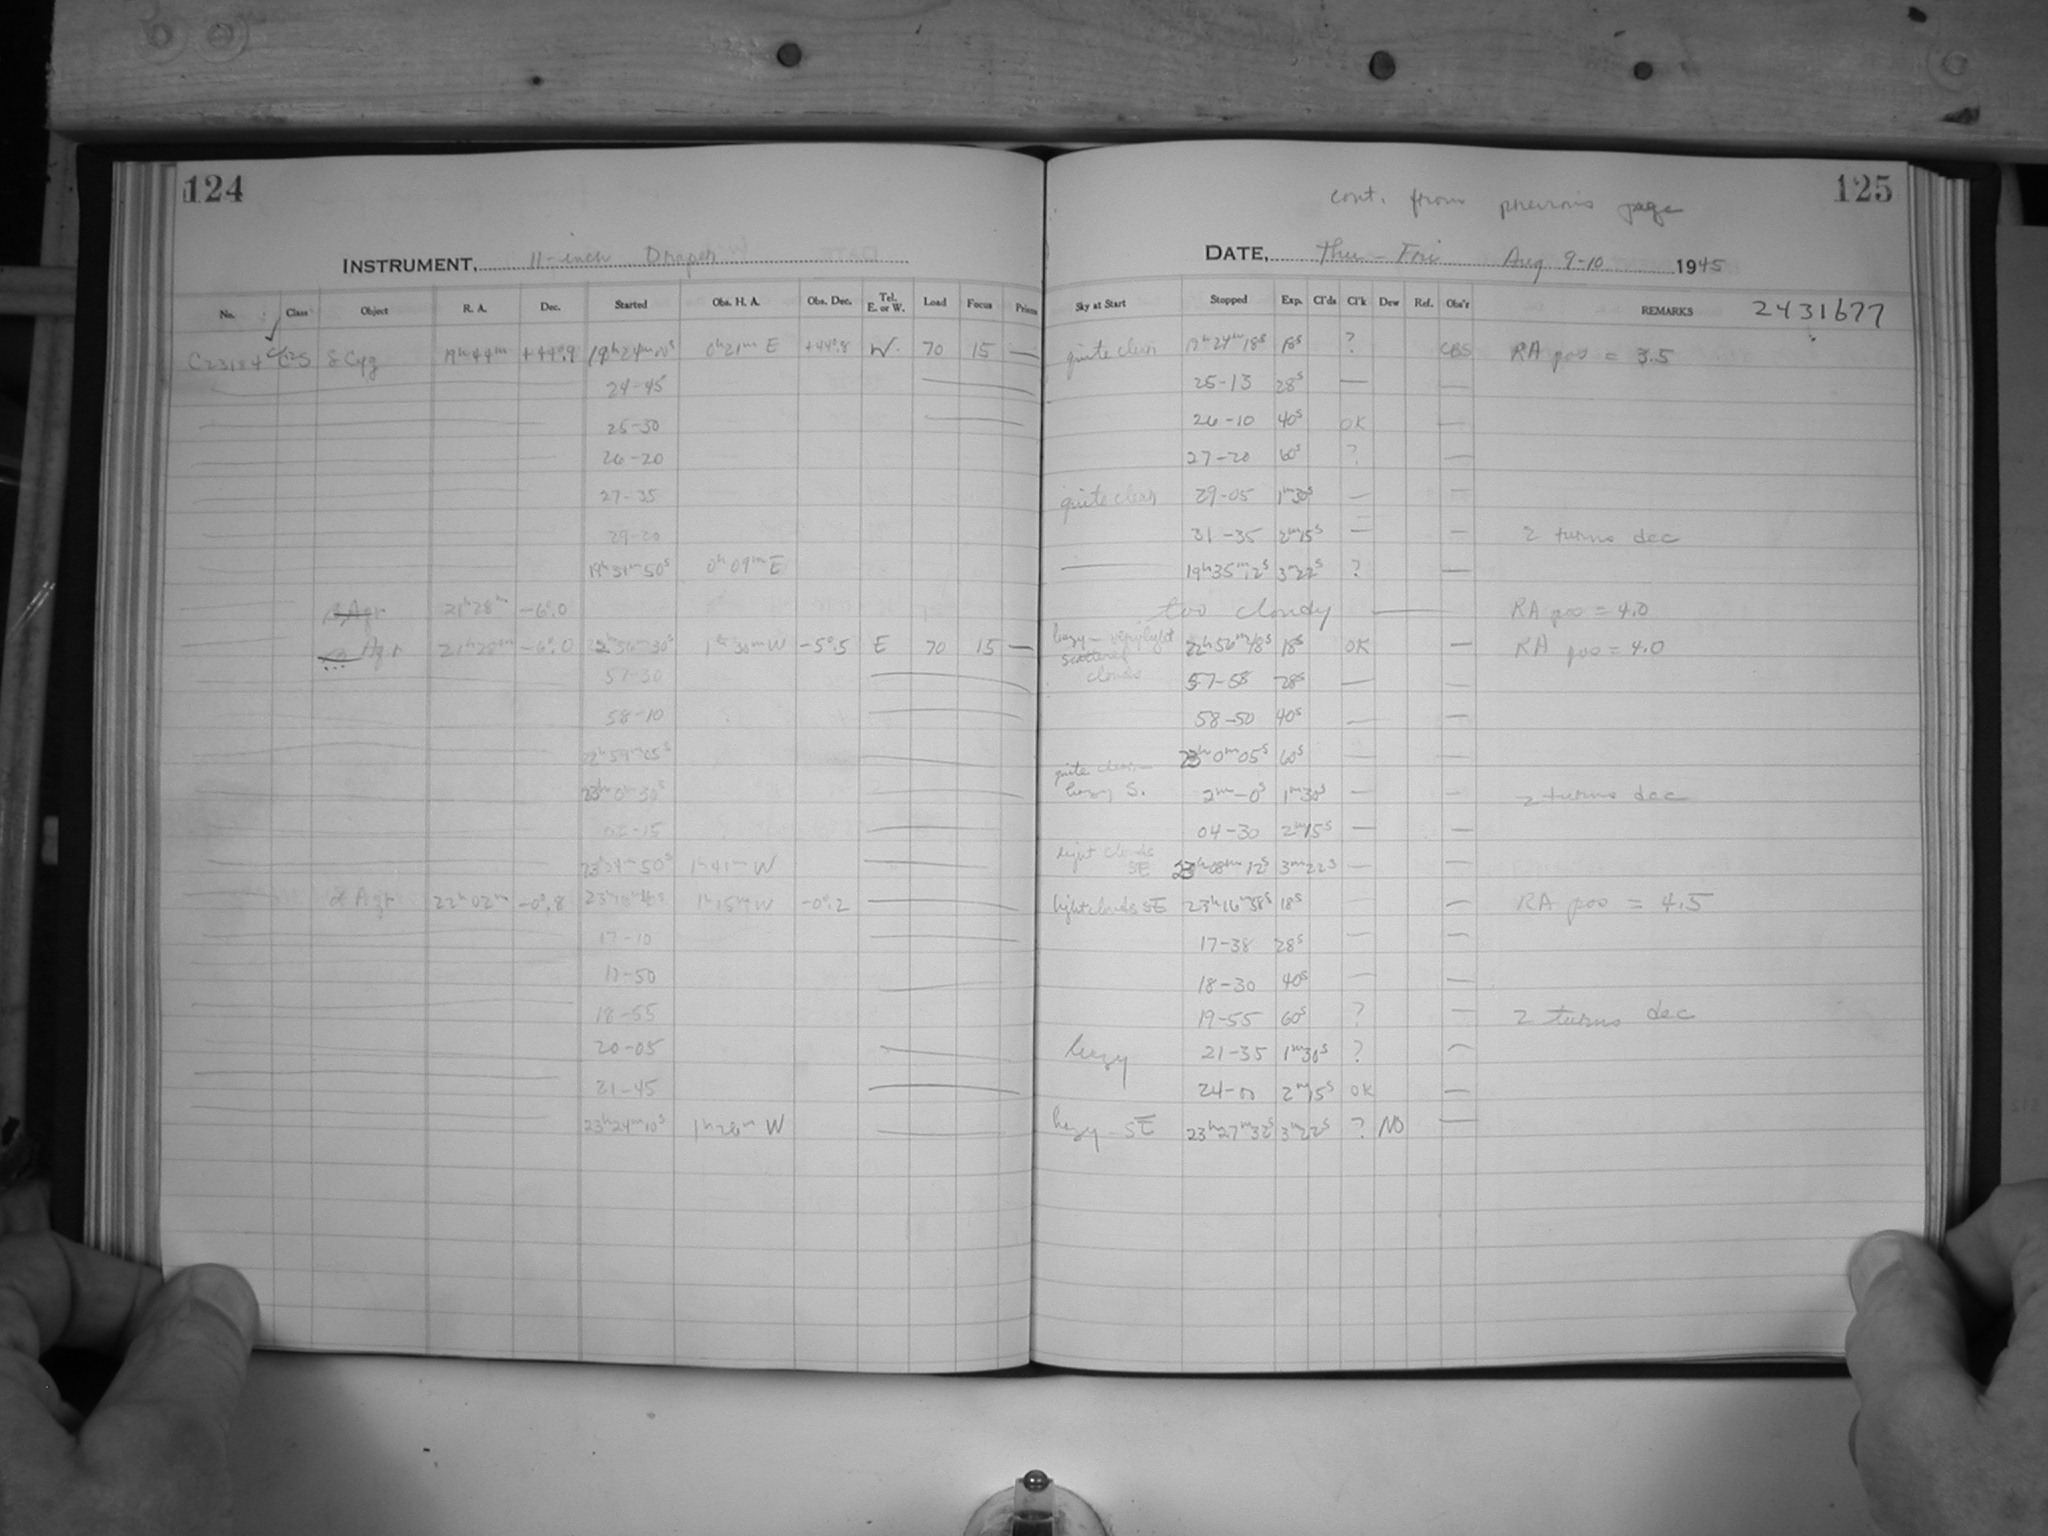 124
INSTRUMENT, 11-inch Draper
No. Class Object R. A. Dec. Started Obs. H. A. Obs. Dec. Tel. E. or W. Load Focus Prism
C23184 δ Cyg 19h44m +44°.9 19h24m00s 0h21m E +44°.8 W. 70 15 —
24-45
25-30
26-20
27-35
29-20
19h31m50s 0h09m E
β Aqr 21h28m -6°.0
β Aqr 21h28m -6°.0 22h56m30s 1h30m W -5°.5 E 70 15 —
57-30
58-10
22h59m05s
23h0m30s
02-15
50s 1h41m W
α Aqr 22h02m -0°.8 1h15m W -0°.2
17-10
17-50
18-55
20-05
21-45
23h24m10s 1h26m W
125
cont. from previous page
DATE, Thu - Fri Aug 9-10 1945
Sky at Start Stopped Exp. Cl'ds Cl'k Dew Ref. Obs'r REMARKS 2431677
quite clear 19h24m18s 18s ? CBS RA pos = 3.5
25-13 28s — —
26-10 40s OK —
27-20 60s ? —
quite clear 29-05 1m30s — —
31-35 2m15s — — 2 turns dec
— 19h35m12s 3m22s ? —
too cloudy — RA pos = 4.0
hazy - very light scattered clouds 22h56m48s 18s OK — RA pos = 4.0
57-58 28s — —
58-50 40s — —
23h0m05s 60s — —
quite clear — hazy S. 2m-0s 1m30s — — 2 turns dec
04-30 2m15s — —
light clouds SE 23h08m12s 3m22s —
light clouds SE 23h16m58s 18s — — RA pos = 4.5
17-38 28s — —
18-30 40s — —
19-55 60s ? — 2 turns dec
hazy 21-35 1m30s ? —
24-00 2m15s OK —
hazy SE 23h27m32s 3m22s ? NO —